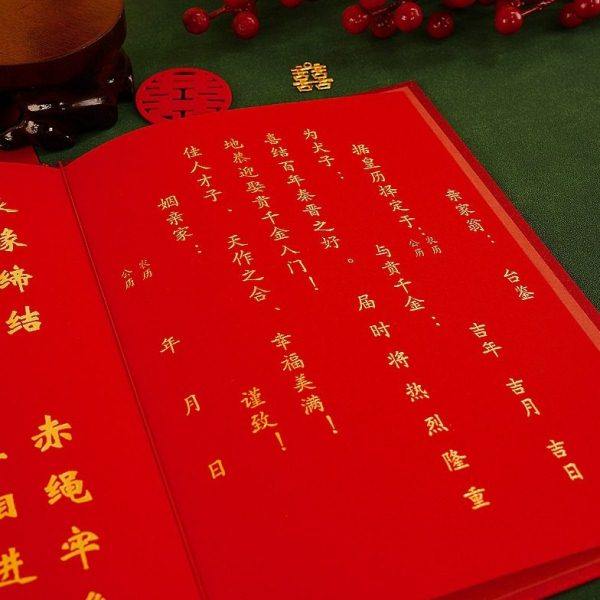 亲家翁： 台鉴
据皇历择定于： 农历 公历 吉年 吉月 吉日
为犬子： 与贵千金：
喜结百年秦晋之好。 届时将热烈隆重
地恭迎娶贵千金入门！
佳人才子、天作之合、幸福美满！
姻亲家： 谨致！
农历 公历 年 月 日
缔结 赤绳牢
进